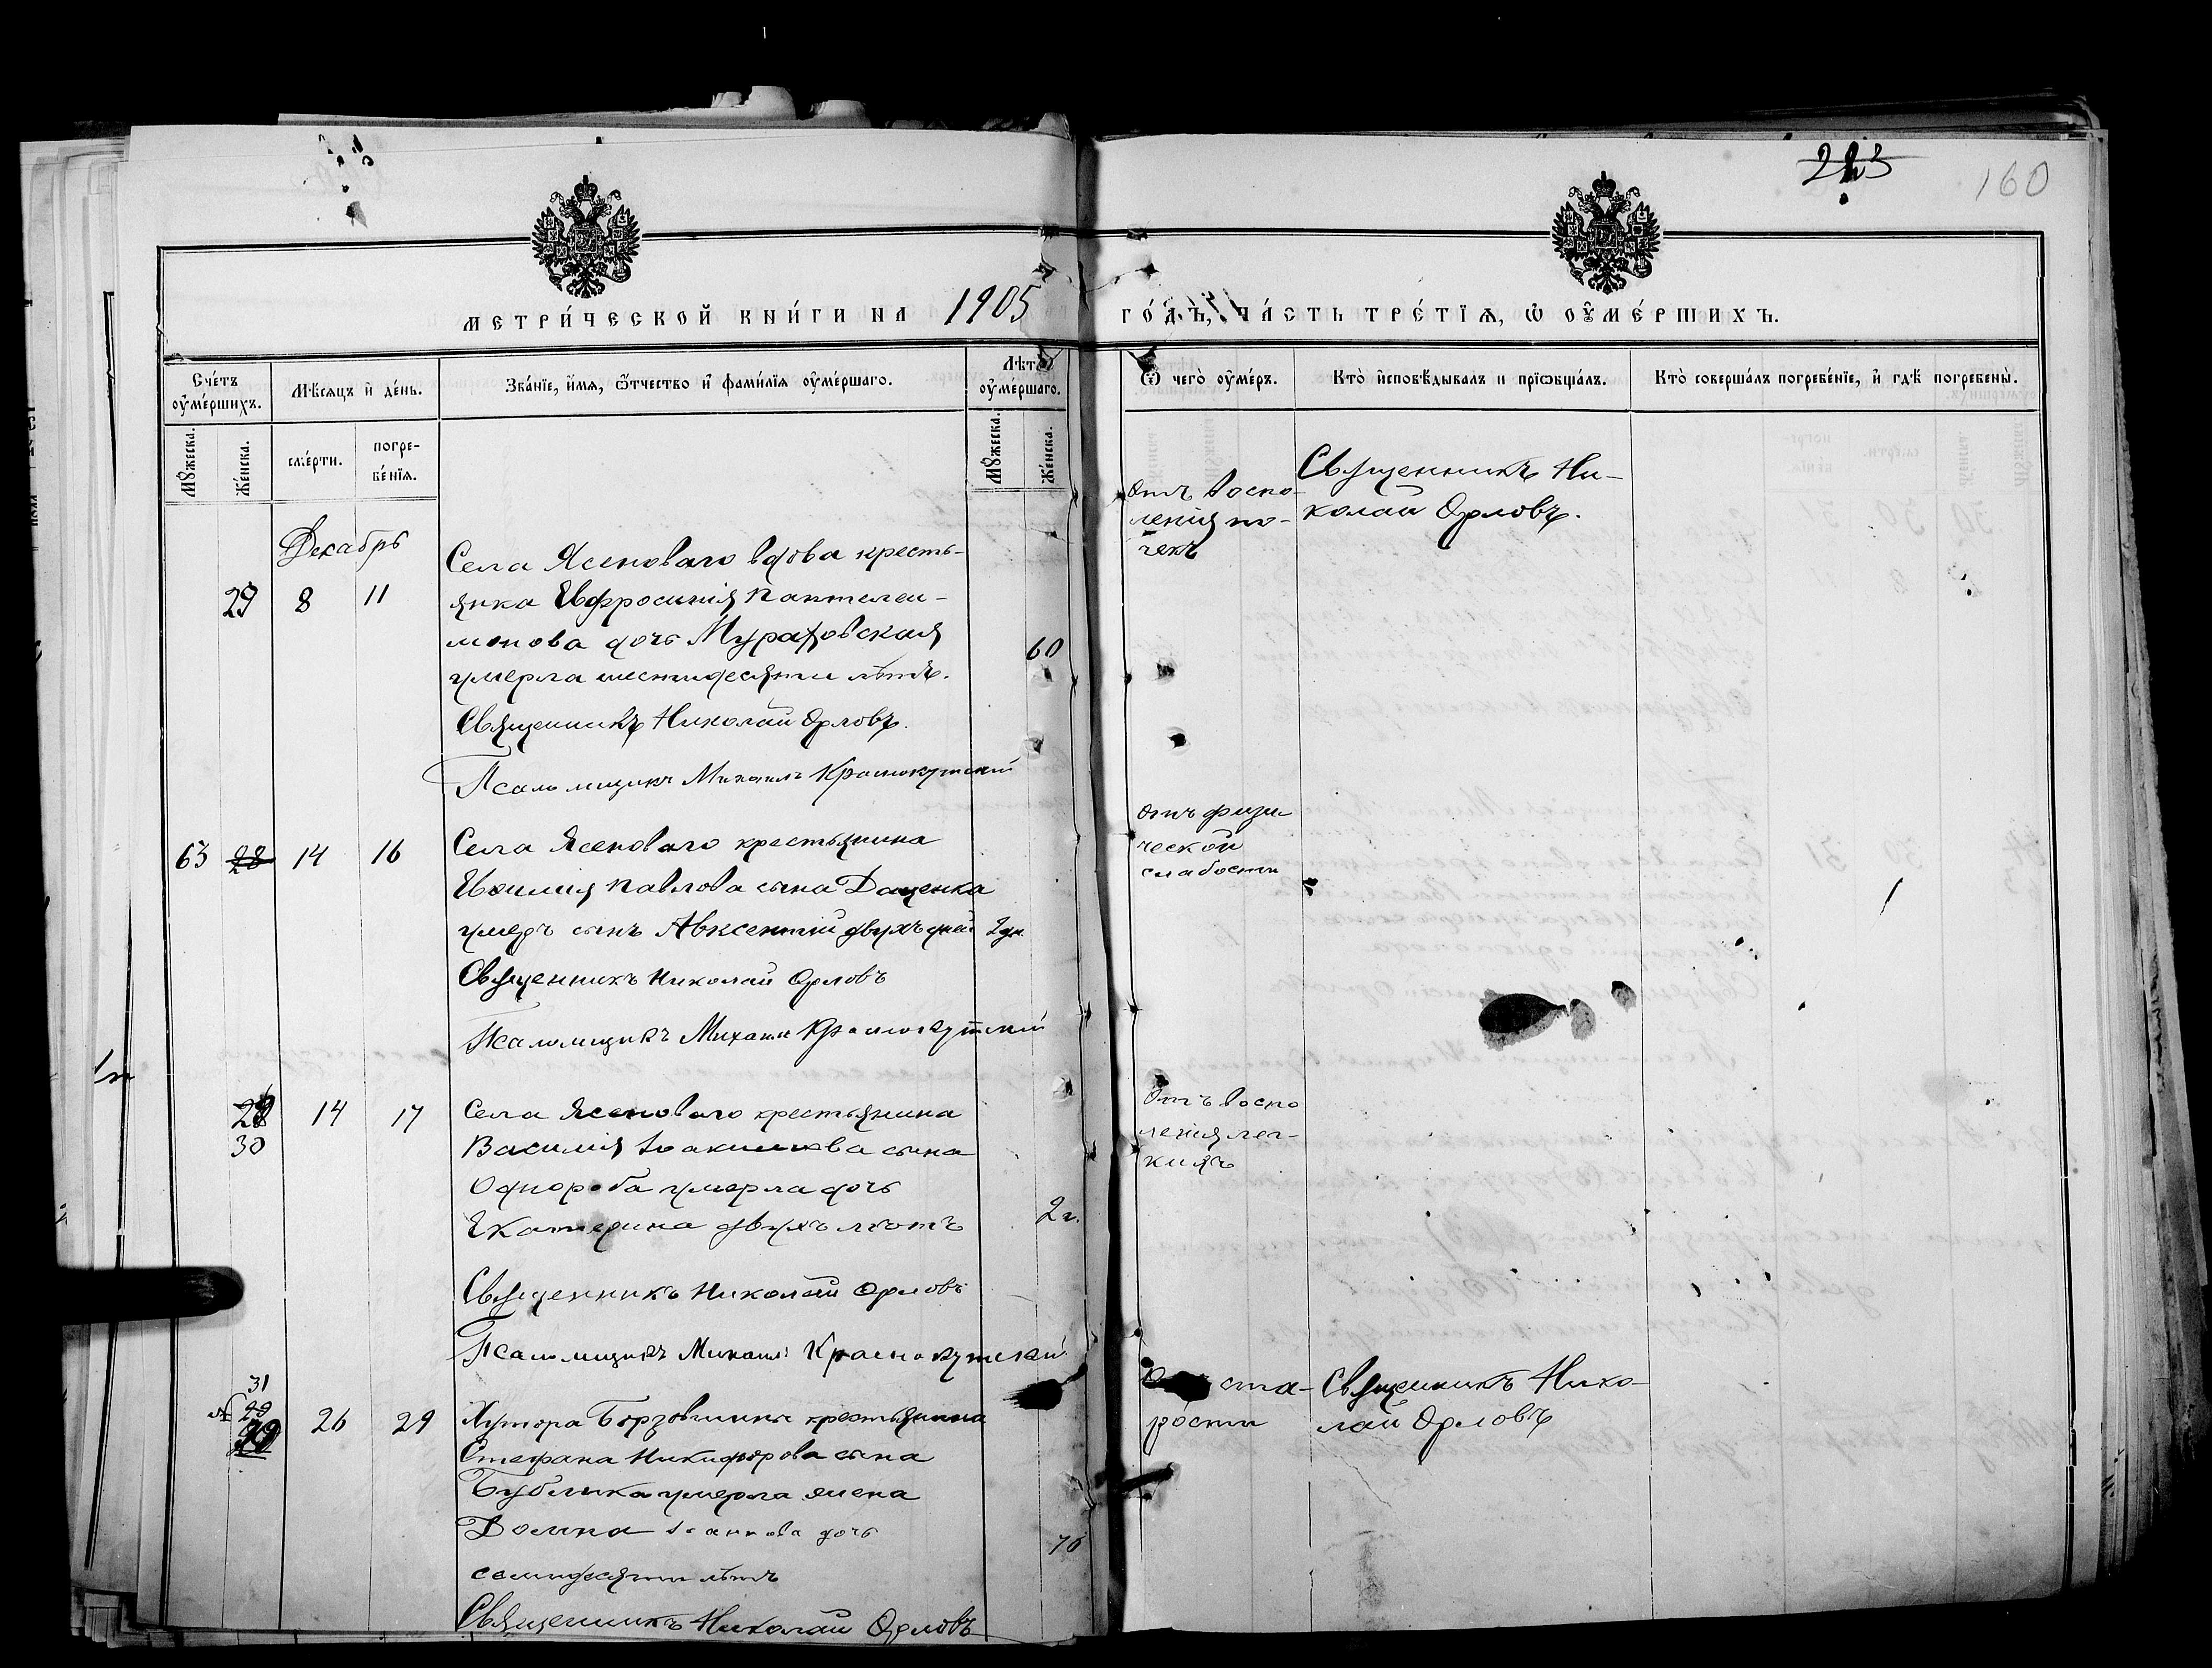 215
160
МЕТРИ́ЧЕСКОЙ КНИ́ГИ НА 1905 ГО́ДЪ, ЧА́СТЬ ТРЕ́ТЇѦ, Ѡ ОУ҆МЕ́РШИХЪ.
Сче́тъ оу҆ме́ршихъ.
Мѣ́сѧцъ и҆ де́нь.
Зва́нїе, и҆́мѧ, ѻ҆́тчество и҆ фами́лїѧ оу҆ме́ршаго.
Лѣ́та оу҆ме́ршаго.
Ѿ чегѡ̀ оу҆ме́ръ.
Кто̀ и҆сповѣ́дывалъ и прїѡбща́лъ.
Кто̀ соверша́лъ погребе́нїе, и҆ гдѣ̀ погребены̀.
Мꙋ́жеска.
Же́нска.
сме́рти.
погре-
бе́нїѧ.
Мꙋ́жеска.
Же́нска.
Декабрь
29 8 11
Села Ясеноваго вдова кресть-
янка Евфросинія Пантелеи-
монова дочь Мураховская
умерла шестидесяти лѣтъ.
60
Священникъ Николай Орловъ.
Псаломщикъ Михаилъ Краснокутскій
Отъ воспа-
ленія по-
чекъ
Священникъ Ни-
колай Орловъ.
63 28 14 16
Села Ясеноваго крестьянина
Павлова сына Даценка
умеръ сынъ Авксентій двухъ дней 2 дн.
Священникъ Николай Орловъ
Псаломщикъ Михаилъ Краснокутскій
Отъ физи
ческой
слабости
30 14 17
Села Ясеноваго крестьянина
Василія Іоакимова сына
Однороба умерла дочь
Екатерина двухъ лѣтъ
2 г.
Священникъ Николай Орловъ
Псаломщикъ Михаилъ Краснокутскій
Отъ воспа
ленія лег-
кихъ
31
29
26 29
Хутора Борзовшины крестьянина
Стефана Никифорова сына
Бублика умерла жена
Домна Іоаннова дочь
семидесяти лѣтъ
70
Священникъ Николай Орловъ
ста-
рости
Священникъ Нико-
лай Орловъ